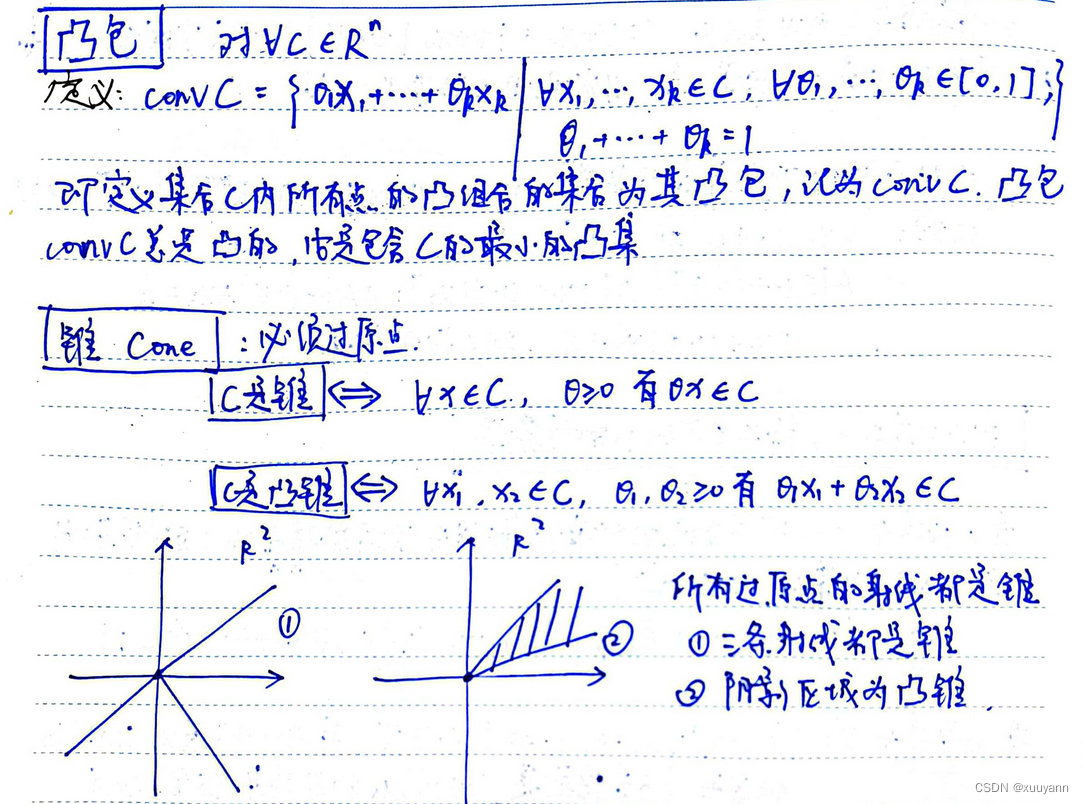 凸包 对∀C∈Rⁿ
定义: conv C = { θ₁x₁+⋯+θₖxₖ | ∀x₁,⋯,xₖ∈C; ∀θ₁,⋯,θₖ∈[0,1];
θ₁+⋯+θₖ=1 }
即定义集合C内所有点的凸组合的集合为其凸包,记为conv C. 凸包
conv C总是凸的,也是包含C的最小的凸集
锥 Cone :必须过原点.
C是锥 ⇔ ∀x∈C, θ≥0 有θx∈C
C是凸锥 ⇔ ∀x₁,x₂∈C, θ₁,θ₂≥0 有 θ₁x₁+θ₂x₂∈C
R²
①
R²
②
所有过原点的射线都是锥
① 三条射线都是锥
② 阴影区域为凸锥.
CSDN @xuuyann